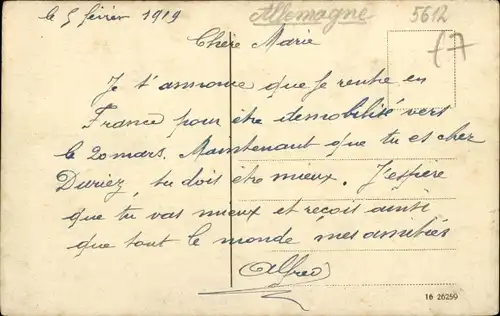 le 5 février 1919
Allemagne
5612
Chère Marie
Je t'annonce que je rentre en
France pour être démobilisé vers
le 20 mars. Maintenant que tu es chez
Duriez, tu dois être mieux. J'espère
que tu vas mieux et reçois ainsi
que tout le monde mes amitiés
Alfred
16 26259